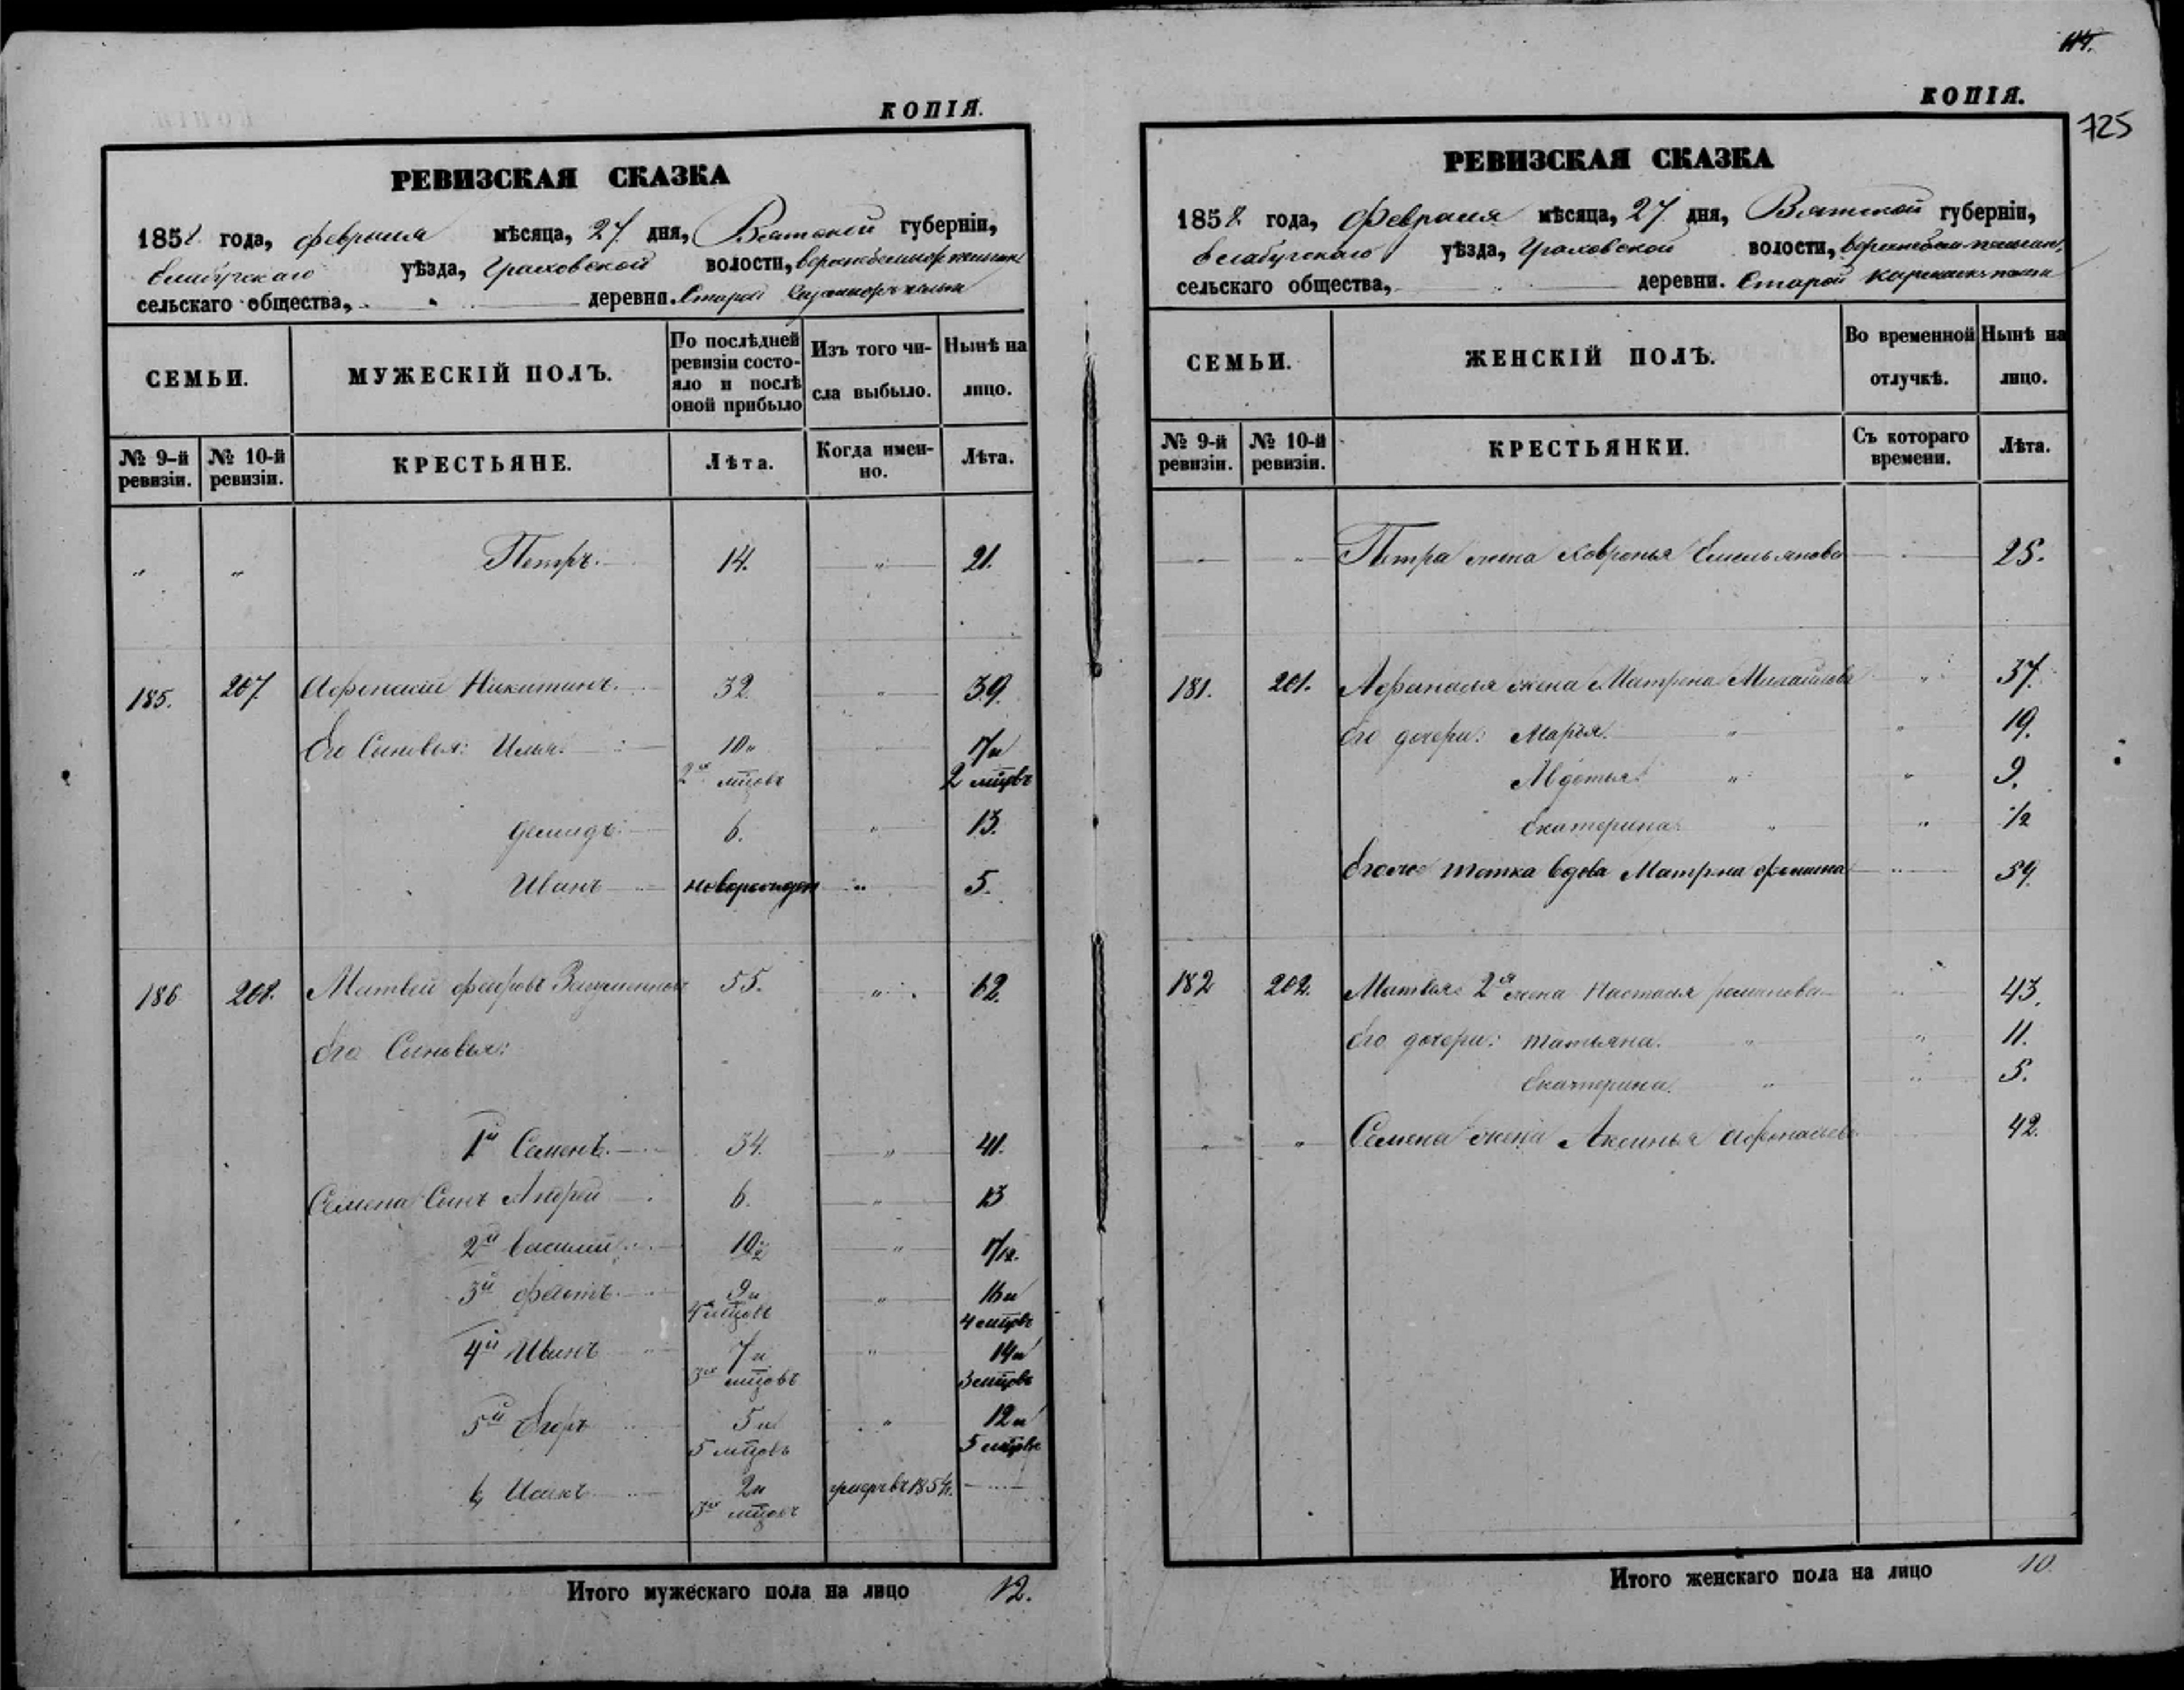 КОПІЯ.
РЕВИЗСКАЯ СКАЗКА
1858 года, февраля мѣсяца, 27 дня, Вятской губерніи,
Елабугскаго уѣзда, Граховской волости,
сельскаго общества, деревни. Старой
СЕМЬИ.
МУЖЕСКІЙ ПОЛЪ.
По послѣдней ревизіи состояло и послѣ оной прибыло
Изъ того числа выбыло.
Нынѣ на лицо.
№ 9-й ревизіи.
№ 10-й ревизіи.
КРЕСТЬЯНЕ.
Лѣта.
Когда именно.
Лѣта.
" " Петръ. 14. " 21.
185. 207. Афонасій Никитинъ. 32. " 39.
Его Сыновья: Илья. 10 и 2хъ мцовъ " 17 и 2 мцовъ
Демидъ. 6. " 13.
Иванъ новорожден " 5.
186 208. Матвей 55. " 62.
Его Сыновья:
1й Семенъ. 34. " 41.
Семена Сынъ Андрей 6. " 13
2й Василий 10½ " 17½.
3й Федотъ. 9 и 4 мцовъ " 16 и 4 мцовъ
4й Иванъ 7 и 3хъ мцовъ " 14 и 3 мцовъ
5й Егоръ 5 и 5 мцовъ " 12 и 5 мцовъ
6й 2 и 3хъ мцовъ умеръ въ 1854 г.
Итого мужескаго пола на лицо 12.
КОПІЯ.
725
РЕВИЗСКАЯ СКАЗКА
1858 года, февраля мѣсяца, 27 дня, Вятской губерніи,
Елабугскаго уѣзда, Граховской волости,
сельскаго общества, деревни. Старой
СЕМЬИ.
ЖЕНСКІЙ ПОЛЪ.
Во временной отлучкѣ.
Нынѣ на лицо.
№ 9-й ревизіи.
№ 10-й ревизіи.
КРЕСТЬЯНКИ.
Съ котораго времени.
Лѣта.
" Петра жена Ховронья Емельянова 25.
181. 201. Афанасья жена Матрена Михайлова " 37.
Его дочери: Марья. " " 19.
Авдотья. " " 9.
Екатерина. " " ½
Егоже тетка вдова Матрена Фомина " 59.
182 202. Матвея 2я жена Настасья Романова 43.
Его дочери: Татьяна. " " 11.
Екатерина. " " 5.
" " Семена жена Аксинья Афонасьева 42.
Итого женскаго пола на лицо 10.